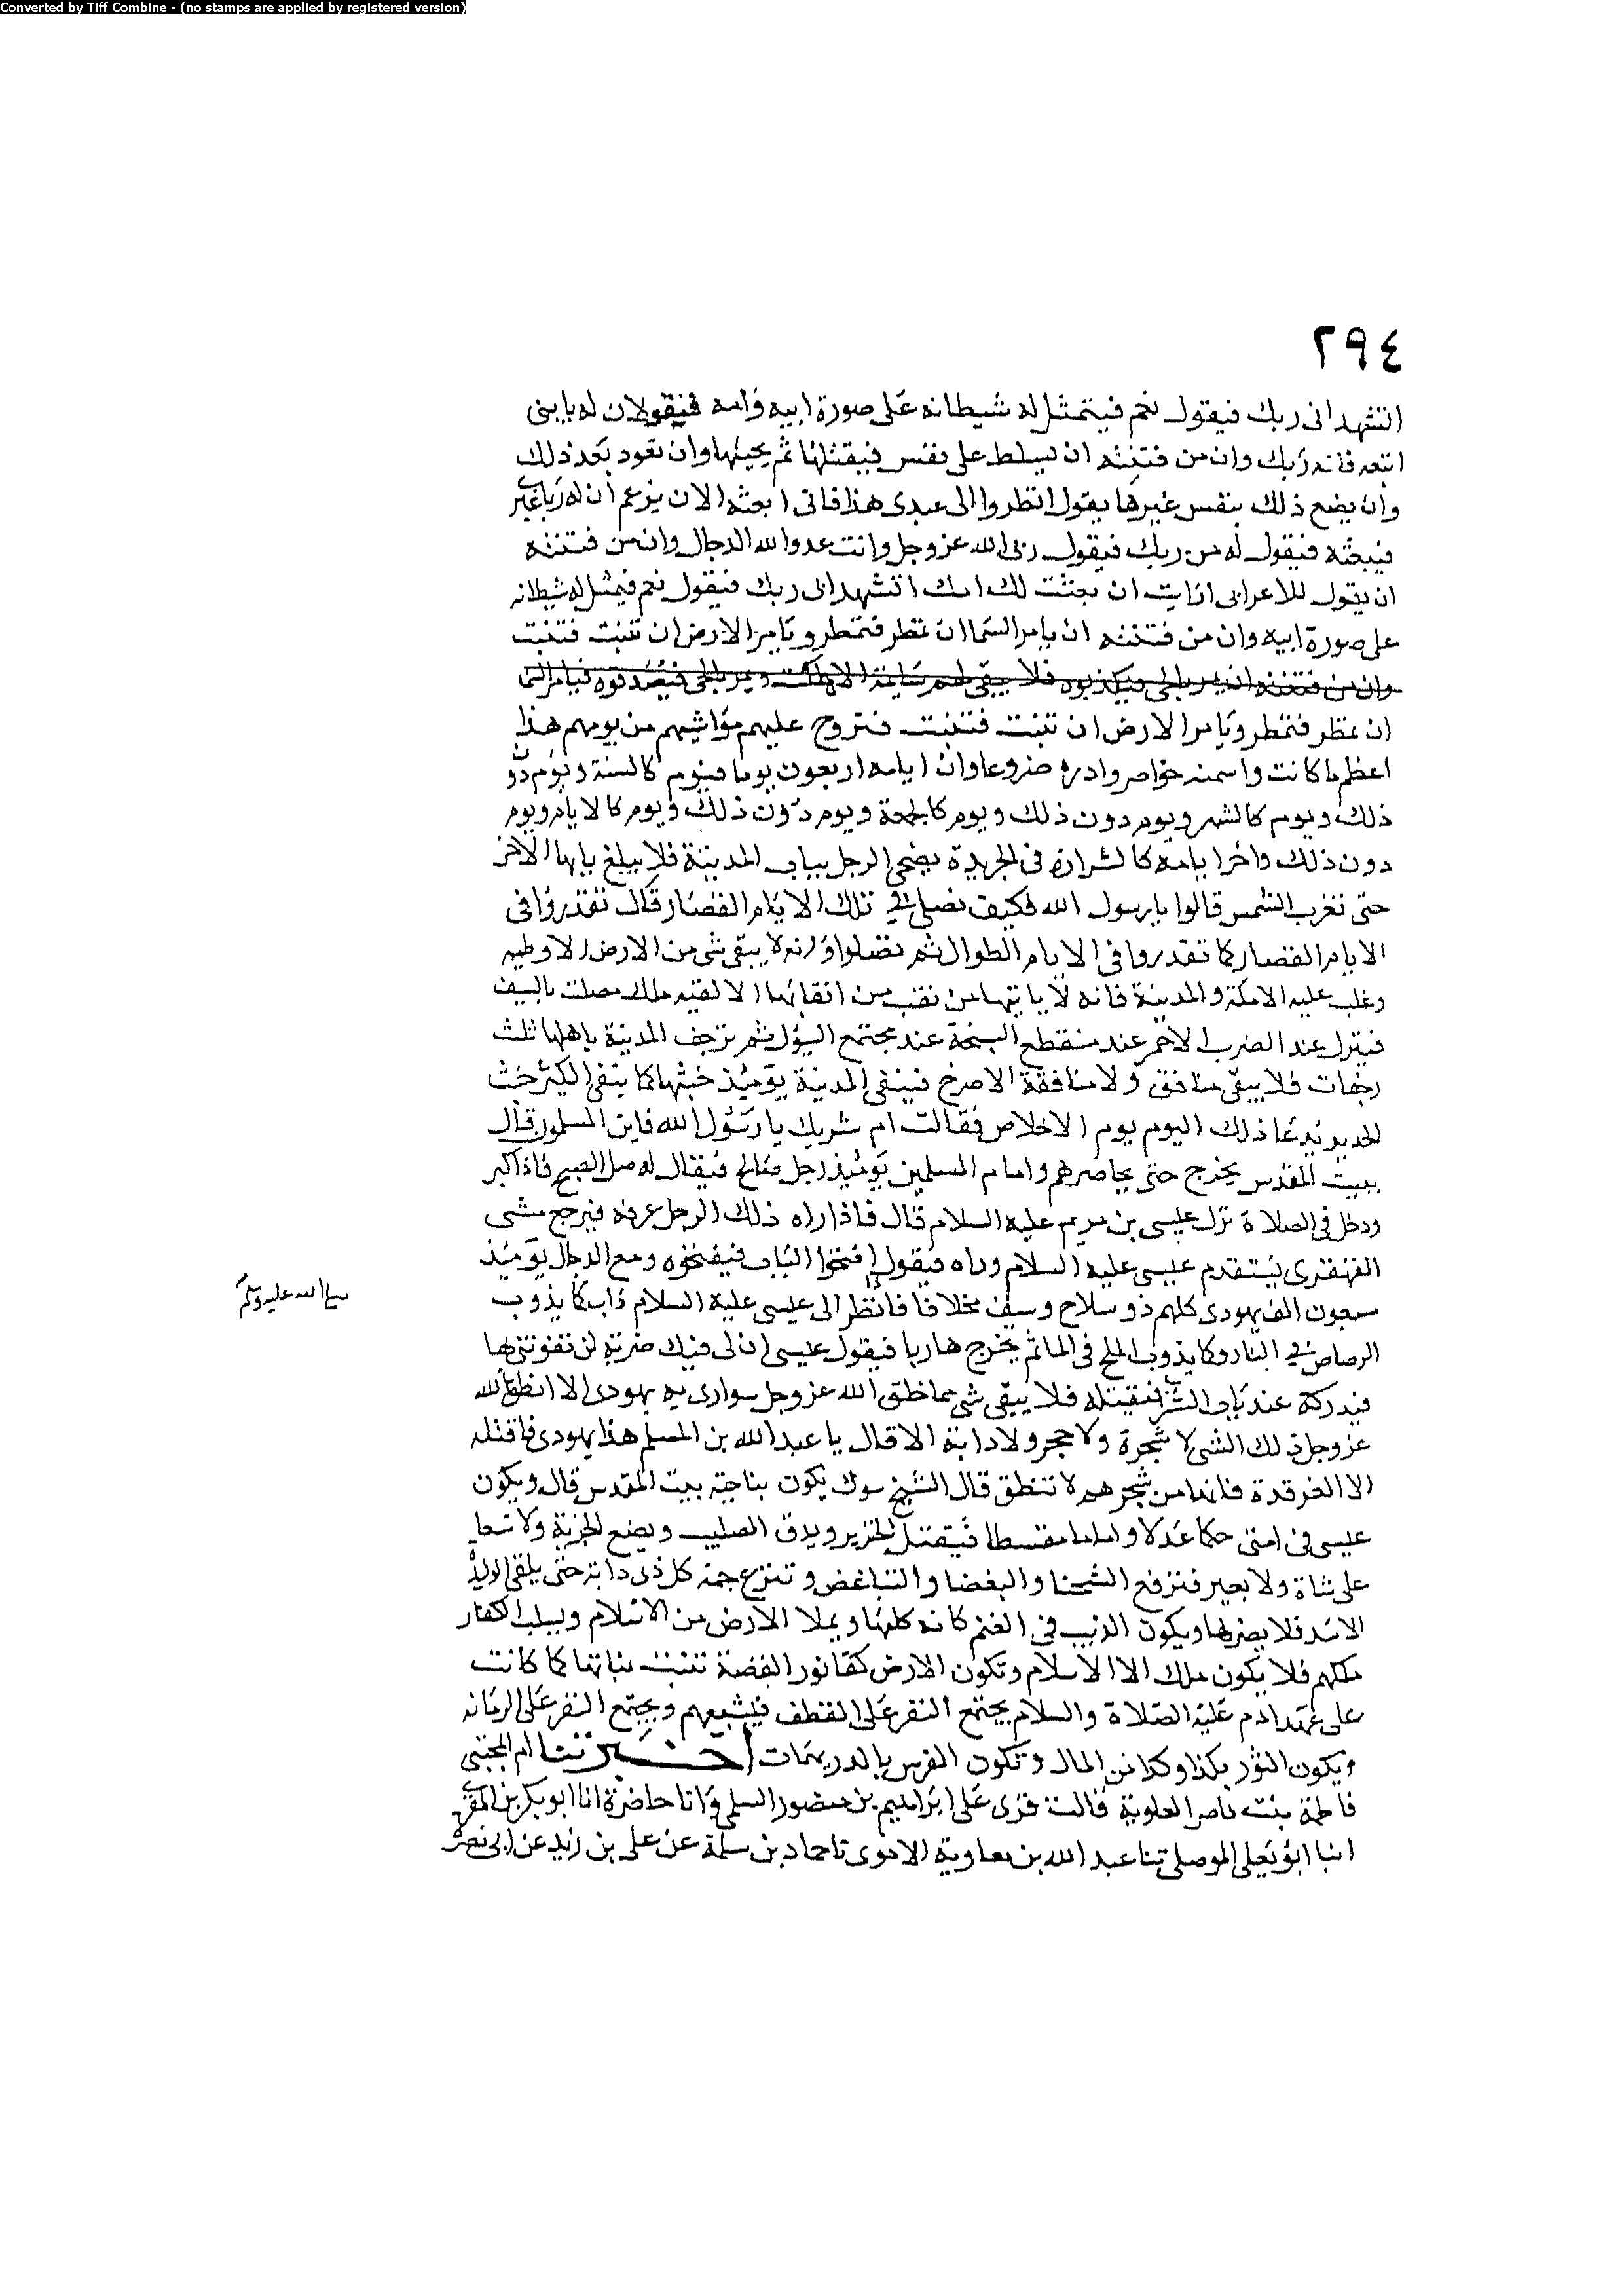 Converted by Tiff Combine - (no stamps are applied by registered version)
٢٩٤
اتشهد انى ربك فيقول نعم فيتمثل له شيطانه على صورة ابيه وامه فيقولان له يا بنى
اتبعه فانه ربك وان من فتنته ان يسلط على نفس فيقتلها ثم يحييها وان تعود بعد ذلك
وان يضع ذلك بنفس غيرها يقول انظروا الى عبدى هذا فانى ابعثه الان يزعم ان له ربا غيرى
فيبعثه فيقول له من ربك فيقول ربى الله عز وجل وانت عدوا لله الدجال وان من فتنته
ان يقول للاعرابى ارايت ان بعثت لك ابك اتشهد انى ربك فيقول نعم فيمثل له شيطانه
على صورة ابيه وان من فتنته ان يامر السما ان تمطر فتمطر ويامر الارض ان تنبت فتنبت
وان من فتنته ان يمر بالحى فيكذبوه فلا يبقى لهم سايمة الا هلكت ويمر بالحى فيصدقوه فيامر السما
ان تمطر فتمطر ويامر الارض ان تنبت فتنبت فتروح عليهم مواشيهم من يومهم هذا
اعظم ما كانت واسمنه خواصر وادره ضروعا وان ايامه اربعون يوما فيوم كالسنة ويوم دون
ذلك ويوم كالشهر ويوم دون ذلك ويوم كالجمعة ويوم دون ذلك ويوم كالايام ويوم
دون ذلك واخر ايامه كالشرارة فى الجريدة يضحى الرجل بباب المدينة فلا يبلغ بابها الاخر
حتى تغرب الشمس قالوا يا رسول الله فكيف نصلى فى تلك الايام القصار قال تقدروا فى
الايام القصار كما تقدروا فى الايام الطوال ثم تصلوا وانه لا يبقى شى من الارض الا وطيه
وغلب عليه الا مكة والمدينة فانه لا ياتيها من نقب من انقابها الا لقيه ملك مصلت بالسيف
فينزل عند الضرب الاحمر عند منقطع السبخة عند مجتمع السيول ثم ترجف المدينة باهلها ثلث
رجفات فلا يبقى منافق ولا منافقة الا خرج فينفى المدينة يومئذ خبثها كما ينفى الكير خبث
الحديد يدعا ذلك اليوم يوم الاخلاص فقالت ام شريك يا رسول الله فاين المسلمون قال
ببيت المقدس يخرج حتى يحاصرهم وامام المسلمين يومئذ رجل صالح فيقال له صل الصبح فاذا كبر
ودخل فى الصلاة نزل عيسى بن مريم عليه السلام قال فاذا راه ذلك الرجل عرفه فيرجع مشى
القهقرى ليتقدم عيسى عليه السلام وراه فيقول افتحوا الباب فيفتحوه ومع الدجال يومئذ
سبعون الف يهودى كلهم ذو سلاح وسيف محلا فاذا نظر الى عيسى عليه السلام ذاب كما يذوب
صلى الله عليه وسلم
الرصاص فى النار وكما يذوب الملح فى الما ثم يخرج هاربا فيقول عيسى ان لى فيك ضربة لن تفوتنى بها
فيدركه عند باب الشرقى فيقتله فلا يبقى شى مما خلق الله عز وجل يتوارى به يهودى الا انطق الله
عز وجل ذلك الشى لا شجرة ولا حجر ولا دابة الا قال يا عبد الله بن المسلم هذا يهودى فاقتله
الا الغرقدة فانها من شجرهم لا تنطق قال الشيخ شوك يكون بناحية بيت المقدس قال ويكون
عيسى فى امتى حكما عدلا واماما مقسطا فيقتل الخنزير ويدق الصليب ويضع الجزية ولا يسعا
على شاة ولا بعير فترفع الشحنا والبغضا والتباغض وتنزع حمة كل ذى دابة حتى يلقى الوليدة
الاسد فلا يضرها ويكون الذيب فى الغنم كانه كلبها ويملا الارض من الاسلام ويسلب الكفار
ملكهم فلا يكون ملك الا الاسلام وتكون الارض كفاثور الفضة تنبت نباتها كما كانت
على عهد ادم عليه الصلاة والسلام يجتمع النفر على القطف فيشبعهم ويجتمع النفر على الرمانه
ويكون الثور بكذا وكذا من المال وتكون الفرس بالدريهمات اخبرتنا ام المجتبى
فاطمة بنت ناصر العلوية قالت قرى على ابراهيم بن منصور السلمى وانا حاضرة انا ابو بكر بن المقرى
انبا ابو يعلى الموصلى ثنا عبد الله بن معاوية الاموى نا حماد بن سلمة عن على بن زيد عن ابى نضرة